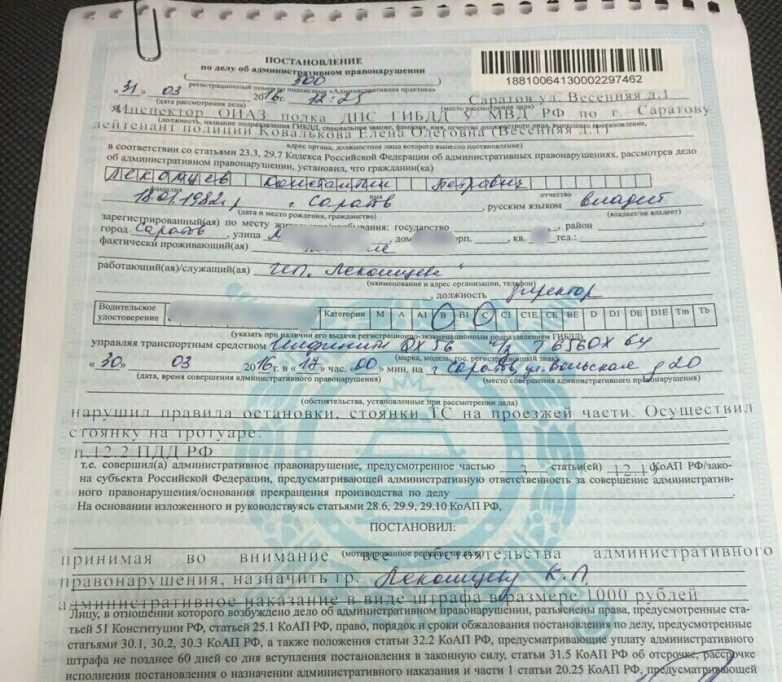 ПОСТАНОВЛЕНИЕ
по делу об административном правонарушении
18810064130002297462
(регистрационный номер подсистемы «Административная практика»)
"31" 03 2016г. 12:25 Саратов ул. Весенняя д.1
(дата рассмотрения дела) (место рассмотрения дела)
я Инспектор ОИАЗ полка ДПС ГИБДД У МВД РФ по г. Саратову
лейтенант полиции Ковалькова Елена Олеговна Весенняя д.1,
адрес органа, должностное лицо которого вынесло постановление)
в соответствии со статьями 23.3, 29.7 Кодекса Российской Федерации об административных правонарушениях, рассмотрев дело
об административном правонарушении, установил, что гражданин(ка)
Лекомцев Константин Петрович
фамилия отчество
18.01.1982г. г. Саратов, русским языком владеет
(дата и место рождения, гражданство) (владеет/не владеет)
зарегистрированный(ая) по месту жительства/пребывания: государство , район
город Саратов, улица , дом , корп. , кв. тел.:
фактически проживающий(ая)
работающий(ая)/служащий(ая) ИП. Лекомцев
(наименование и адрес организации, телефон)
, должность директор
Водительское удостоверение Категории M A A1 B B1 C C1 C1E CE BE D D1 DE D1E Tm Tb
(указать при наличии его выдачи регистрационно-экзаменационным подразделением ГИБДД)
управляя транспортным средством Инфинити QX 56 656 ОХ 64
(марка, модель, гос. регистрационный знак)
"30" 03 2016г в «17» час. 00 мин, на г. Саратов, ул. Вольская д 20
(дата, время совершения административного правонарушения) (место совершения административного правонарушения)
(обстоятельства, установленные при рассмотрении дела)
нарушил правила остановки, стоянки ТС на проезжей части. Осуществил
стоянку на тротуаре.
п.12.2 ПДД РФ
т.е. совершил(а) административное правонарушение, предусмотренное частью 3 статьи(ей) 12.19 КоАП РФ/зако-
на субъекта Российской Федерации, предусматривающей административную ответственность за совершение административ-
ного правонарушения/основания прекращения производства по делу
На основании изложенного и руководствуясь статьями 28.6, 29.9, 29.10 КоАП РФ,
ПОСТАНОВИЛ:
(мотивированное решение по делу)
принимая во внимание все обстоятельства административного
правонарушения, назначить гр. Лекомцеву К.П.
административное наказание в виде штрафа в размере 1000 рублей
Лицу, в отношении которого возбуждено дело об административном правонарушении, разъяснены права, предусмотренные ста-
тьей 51 Конституции РФ, статьей 25.1 КоАП РФ, право, порядок и сроки обжалования постановления по делу, предусмотренные
статьями 30.1, 30.2, 30.3 КоАП РФ, а также положения статьи 32.2 КоАП РФ, предусматривающие уплату административного
штрафа не позднее 60 дней со дня вступления постановления в законную силу, статьи 31.5 КоАП РФ об отсрочке, рассрочке
исполнения постановления о назначении административного наказания и части 1 статьи 20.25 КоАП РФ, предусматривающей